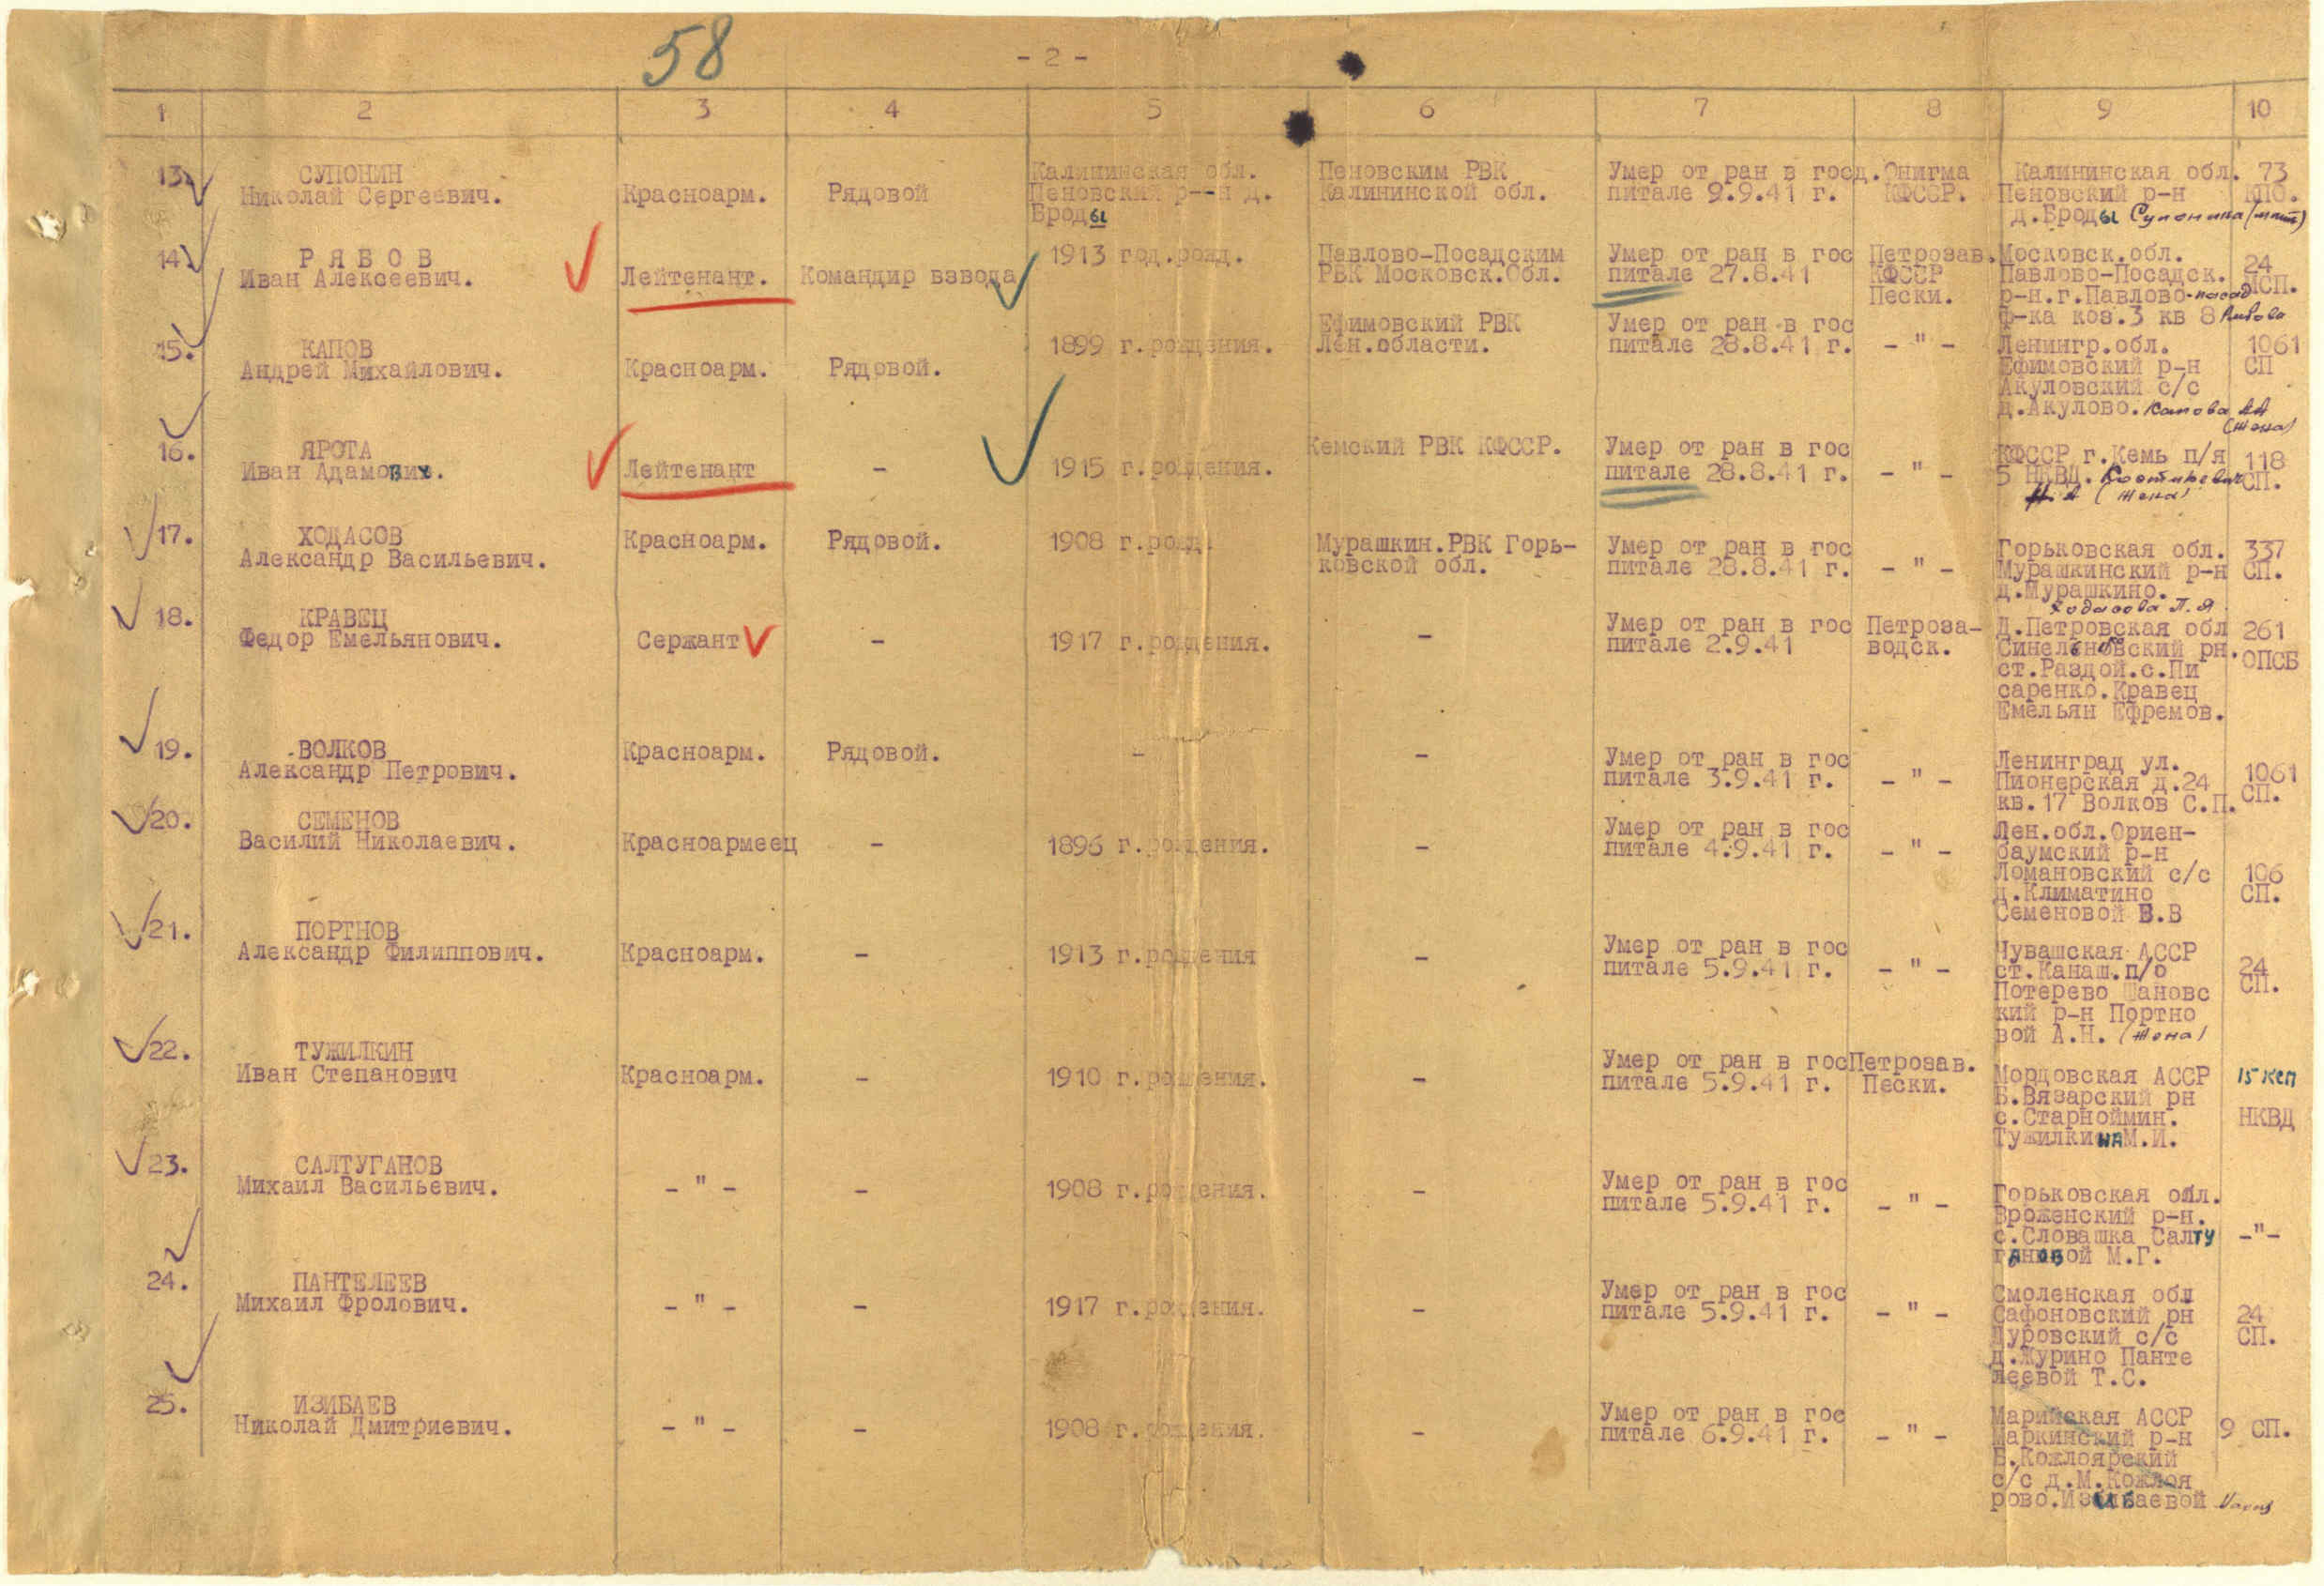 58
- 2 -
1 2 3 4 5 6 7 8 9 10
13. СУПОНИН
Николай Сергеевич.
Красноарм.
Рядовой
Калининская обл.
Пеновский р--н д.
Броды
Пеновским РВК
Калининской обл.
Умер от ран в гос
питале 9.9.41 г.
д.Онигма
КФССР.
Калининская обл.
Пеновский р-н
д.Броды Супонина (мать)
73
КПО.
14. РЯБОВ
Иван Алексеевич.
Лейтенант.
Командир взвода
1913 год.рожд.
Павлово-Посадским
РВК Московск.Обл.
Умер от ран в гос
питале 27.8.41
Петрозав.
КФССР
Пески.
Московск.обл.
Павлово-Посадск.
р-н.г.Павлово-посад
ф-ка коз.3 кв 8
24
МСП.
15. КАПОВ
Андрей Михайлович.
Красноарм.
Рядовой.
1899 г.рождения.
Ефимовский РВК
Лен.области.
Умер от ран в гос
питале 28.8.41 г.
- " -
Ленингр.обл.
Ефимовский р-н
Акуловский с/с
д.Акулово. Капова АА
(жена)
1061
СП
16. ЯРОТА
Иван Адамович.
Лейтенант
-
1915 г.рождения.
Кемский РВК КФССР.
Умер от ран в гос
питале 28.8.41 г.
- " -
КФССР г.Кемь п/я
5 НКВД. Костюкевич
Н.А (жена)
118
СП.
17. ХОДАСОВ
Александр Васильевич.
Красноарм.
Рядовой.
1908 г.рожд.
Мурашкин.РВК Горь-
ковской обл.
Умер от ран в гос
питале 28.8.41 г.
- " -
Горьковская обл.
Мурашкинский р-н
д.Мурашкино.
Ходасова П.Я
337
СП.
18. КРАВЕЦ
Федор Емельянович.
Сержант
-
1917 г.рождения.
-
Умер от ран в гос
питале 2.9.41
Петроза-
водск.
Д.Петровская обл
Синельновский рн.
ст.Раздой.с.Пи
саренко.Кравец
Емельян Ефремов.
261
ОПСБ
19. ВОЛКОВ
Александр Петрович.
Красноарм.
Рядовой.
-
-
Умер от ран в гос
питале 3.9.41 г.
- " -
Ленинград ул.
Пионерская д.24
кв.17 Волков С.П.
1061
СП.
20. СЕМЕНОВ
Василий Николаевич.
Красноармеец
-
1896 г.рождения.
-
Умер от ран в гос
питале 4.9.41 г.
- " -
Лен.обл.Ориен-
баумский р-н
Ломановский с/с
д.Климатино
Семеновой В.В
106
СП.
21. ПОРТНОВ
Александр Филиппович.
Красноарм.
-
1913 г.рождения
-
Умер от ран в гос
питале 5.9.41 г.
- " -
Чувашская АССР
ст.Канаш.п/о
Потерево Шановс
кий р-н Портно
вой А.Н. (жена)
24
СП.
22. ТУЖИЛКИН
Иван Степанович
Красноарм.
-
1910 г.рождения.
-
Умер от ран в гос
питале 5.9.41 г.
Петрозав.
Пески.
Мордовская АССР
Б.Вязарский рн
с.Старноймин.
Тужилкина М.И.
15 КСП
НКВД
23. САЛТУГАНОВ
Михаил Васильевич.
- " -
-
1908 г.рождения.
-
Умер от ран в гос
питале 5.9.41 г.
- " -
Горьковская обл.
Вроженский р-н.
с.Словашка Салту
гановой М.Г.
-"-
24. ПАНТЕЛЕЕВ
Михаил Фролович.
- " -
-
1917 г.рождения.
-
Умер от ран в гос
питале 5.9.41 г.
- " -
Смоленская обл
Сафоновский рн
Дуровский с/с
д.Журино Панте
леевой Т.С.
24
СП.
25. ИЗИБАЕВ
Николай Дмитриевич.
- " -
-
1908 г.рождения.
-
Умер от ран в гос
питале 6.9.41 г.
- " -
Марийская АССР
Маркинский р-н
Б.Кожлоярский
с/с д.М.Кожлоя
рово.Изибаевой
9 СП.